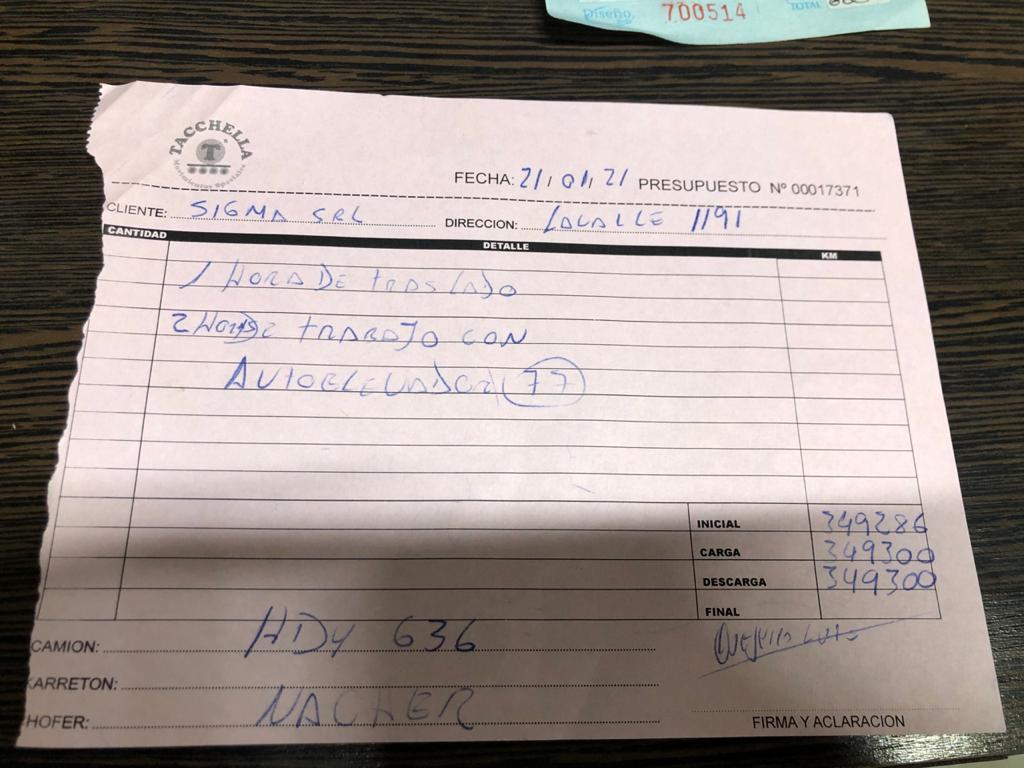 Diseño 700514 TOTAL
TACCHELLA
T
Movimientos Especiales
FECHA: 21/01/21 PRESUPUESTO Nº 00017371
CLIENTE: SIGMA SRL DIRECCION: LAVALLE 1191
CANTIDAD DETALLE KM
1 HORA DE TRASLADO
2 HORAS DE TRABAJO CON
AUTOELEVADOR 77
INICIAL 349286
CARGA 349300
DESCARGA 349300
FINAL
CAMION: HDY 636
CARRETON:
HOFER: NACHER
FIRMA Y ACLARACION